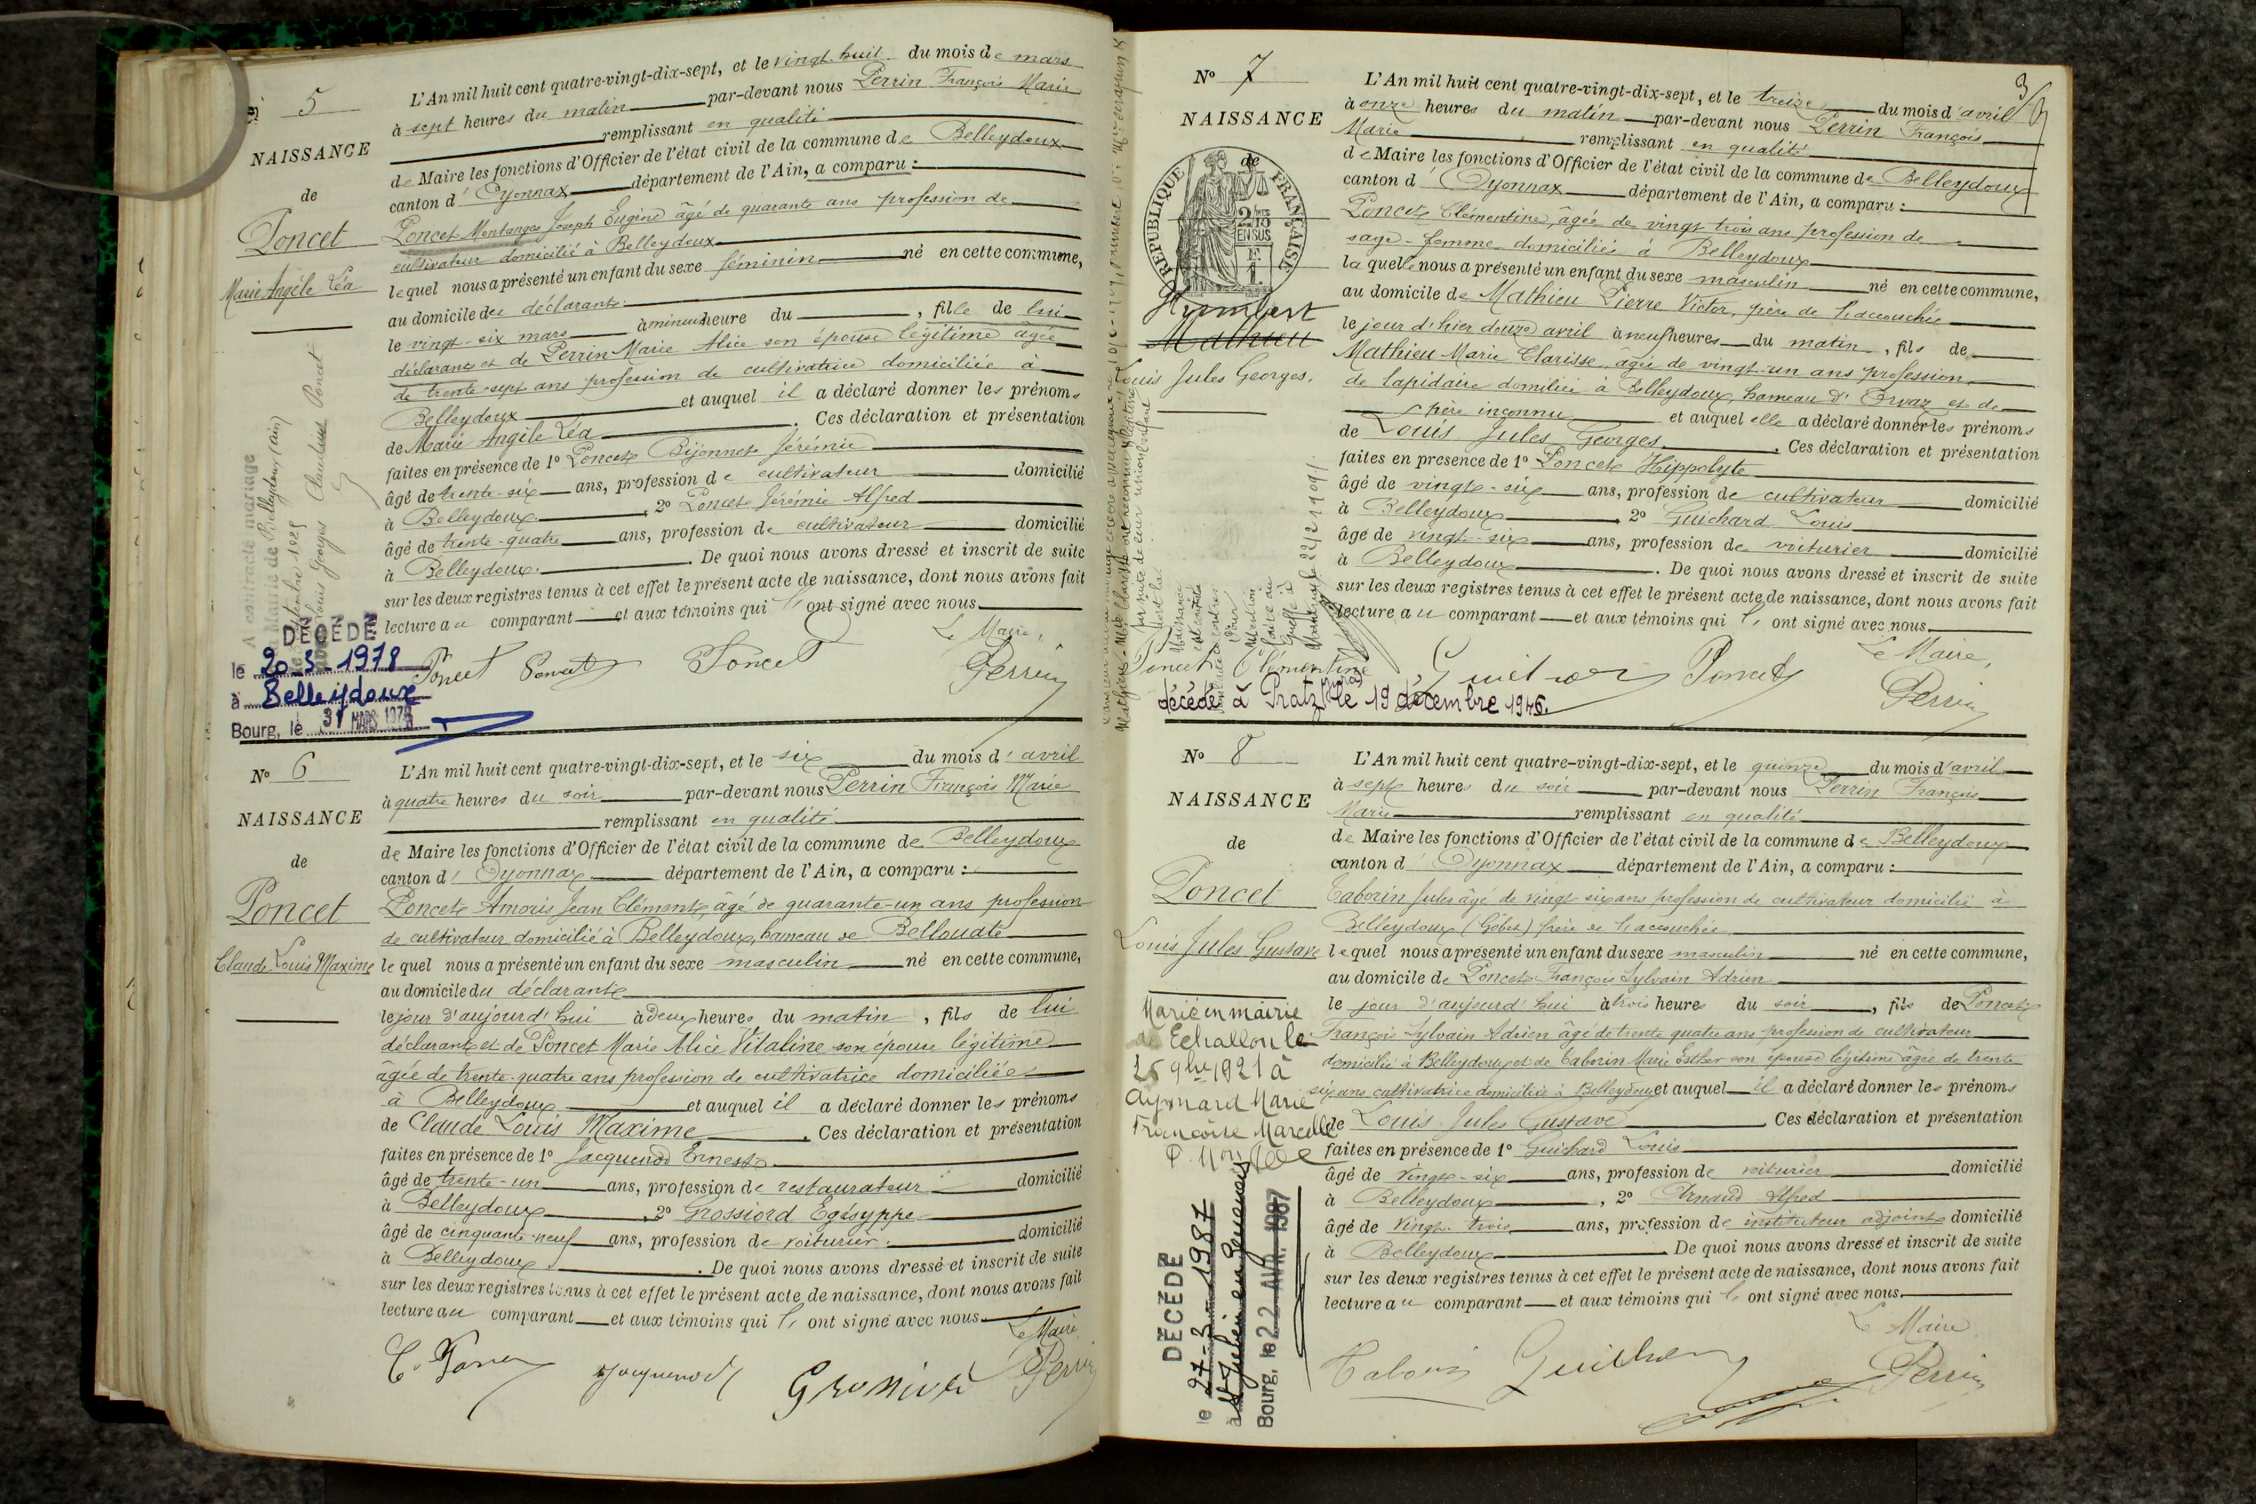 N° 5
NAISSANCE
de
Poncet
Marie Angèle Léa
L'An mil huit cent quatre-vingt-dix-sept, et le vingt-huit du mois de mars
à sept heures du matin par-devant nous Perrin François Marie
remplissant en qualité
de Maire les fonctions d'Officier de l'état civil de la commune de Belleydoux
canton d'Oyonnax département de l'Ain, a comparu :
Poncet Montange Joseph Eugène âgé de quarante ans profession de
cultivateur domicilié à Belleydoux
lequel nous a présenté un enfant du sexe féminin né en cette commune,
au domicile du déclarant
le vingt-six mars à minuit heure du , fille de lui
déclarant et de Perrin Marie Alice son épouse légitime âgée
de trente-sept ans profession de cultivatrice domiciliée à
Belleydoux et auquel il a déclaré donner les prénoms
de Marie Angèle Léa . Ces déclaration et présentation
faites en présence de 1° Poncet Bijonnet Jérémie
âgé de trente-six ans, profession de cultivateur domicilié
à Belleydoux , 2° Poncet Jérémie Alfred
âgé de trente-quatre ans, profession de cultivateur domicilié
à Belleydoux . De quoi nous avons dressé et inscrit de suite
sur les deux registres tenus à cet effet le présent acte de naissance, dont nous avons fait
lecture au comparant et aux témoins qui ont signé avec nous
Le Maire,
Poncet Poncet Poncet Perrin
A contracté mariage
à la Mairie de Belleydoux (Ain)
Louis Georges Poncet
DÉCÉDÉ
le 20-3-1978
à Belleydoux
Bourg, le 31 MARS 1978
N° 6
NAISSANCE
de
Poncet
Claude Louis Maxime
L'An mil huit cent quatre-vingt-dix-sept, et le six du mois d'avril
à quatre heures du soir par-devant nous Perrin François Marie
remplissant en qualité
de Maire les fonctions d'Officier de l'état civil de la commune de Belleydoux
canton d'Oyonnax département de l'Ain, a comparu :
Poncet Amoris Jean Clément, âgé de quarante-un ans profession
de cultivateur domicilié à Belleydoux, hameau de Bellouate
lequel nous a présenté un enfant du sexe masculin né en cette commune,
au domicile du déclarant
le jour d'aujourd'hui à deux heures du matin , fils de lui
déclarant et de Poncet Marie Alice Vitaline son épouse légitime
âgée de trente-quatre ans profession de cultivatrice domiciliée
à Belleydoux et auquel il a déclaré donner les prénoms
de Claude Louis Maxime . Ces déclaration et présentation
faites en présence de 1° Jacquenod Ernest
âgé de trente-un ans, profession de restaurateur domicilié
à Belleydoux , 2° Grossiord Egésyppe
âgé de cinquante-neuf ans, profession de voiturier domicilié
à Belleydoux . De quoi nous avons dressé et inscrit de suite
sur les deux registres tenus à cet effet le présent acte de naissance, dont nous avons fait
lecture au comparant et aux témoins qui ont signé avec nous
Le Maire
Jacquenod Grossiord Perrin
N° 7
NAISSANCE
de
REPUBLIQUE FRANÇAISE
2/10 EN SUS
Humbert
Mathieu
Louis Jules Georges.
L'An mil huit cent quatre-vingt-dix-sept, et le treize du mois d'avril
à onze heures du matin par-devant nous Perrin François
Marie remplissant en qualité
de Maire les fonctions d'Officier de l'état civil de la commune de Belleydoux
canton d'Oyonnax département de l'Ain, a comparu :
Poncet Clémentine, âgée de vingt trois ans profession de
sage-femme domiciliée à Belleydoux
laquelle nous a présenté un enfant du sexe masculin né en cette commune,
au domicile de Mathieu Pierre Victor, père de l'accouchée
le jour d'hier douze avril à neuf heures du matin , fils de
Mathieu Marie Clarisse, âgée de vingt-un ans profession
de lapidaire domiliée à Belleydoux, hameau d'Orvaz et de
père inconnu et auquel elle a déclaré donner les prénoms
de Louis Jules Georges . Ces déclaration et présentation
faites en présence de 1° Poncet Hippolyte
âgé de vingt-six ans, profession de cultivateur domicilié
à Belleydoux , 2° Guichard Louis
âgé de vingt-six ans, profession de voiturier domicilié
à Belleydoux . De quoi nous avons dressé et inscrit de suite
sur les deux registres tenus à cet effet le présent acte de naissance, dont nous avons fait
lecture au comparant et aux témoins qui ont signé avec nous
Le Maire,
Poncet Clémentine Poncet Perrin
décédé à Pratz (Jura) le 19 décembre 1946.
N° 8
NAISSANCE
de
Poncet
Louis Jules Gustave
L'An mil huit cent quatre-vingt-dix-sept, et le quinze du mois d'avril
à sept heures du soir par-devant nous Perrin François
Marie remplissant en qualité
de Maire les fonctions d'Officier de l'état civil de la commune de Belleydoux
canton d'Oyonnax département de l'Ain, a comparu :
Taborin Jules âgé de vingt six ans profession de cultivateur domicilié à
Belleydoux (Gobet) frère de l'accouchée
lequel nous a présenté un enfant du sexe masculin né en cette commune,
au domicile de Poncet François Sylvain Adrien
le jour d'aujourd'hui à trois heures du soir , fils de Poncet
François Sylvain Adrien âgé de trente quatre ans profession de cultivateur
domicilié à Belleydoux et de Taborin Marie Esther son épouse légitime âgée de trente
six ans cultivatrice domiciliée à Belleydoux et auquel il a déclaré donner les prénoms
de Louis Jules Gustave Ces déclaration et présentation
faites en présence de 1° Guichard Louis
âgé de vingt-six ans, profession de voiturier domicilié
à Belleydoux , 2° Arnaud Alfred
âgé de vingt-trois ans, profession de instituteur adjoint domicilié
à Belleydoux De quoi nous avons dressé et inscrit de suite
sur les deux registres tenus à cet effet le présent acte de naissance, dont nous avons fait
lecture au comparant et aux témoins qui ont signé avec nous
Le Maire
Taborin Perrin
Marié en mairie
de Echallon le
25 9bre 1921 à
Aymard Marie
Françoise Marcelle
DÉCÉDÉ
le 27-3-1987
à St Julien en Genevois
Bourg, le 22 AVR. 1987